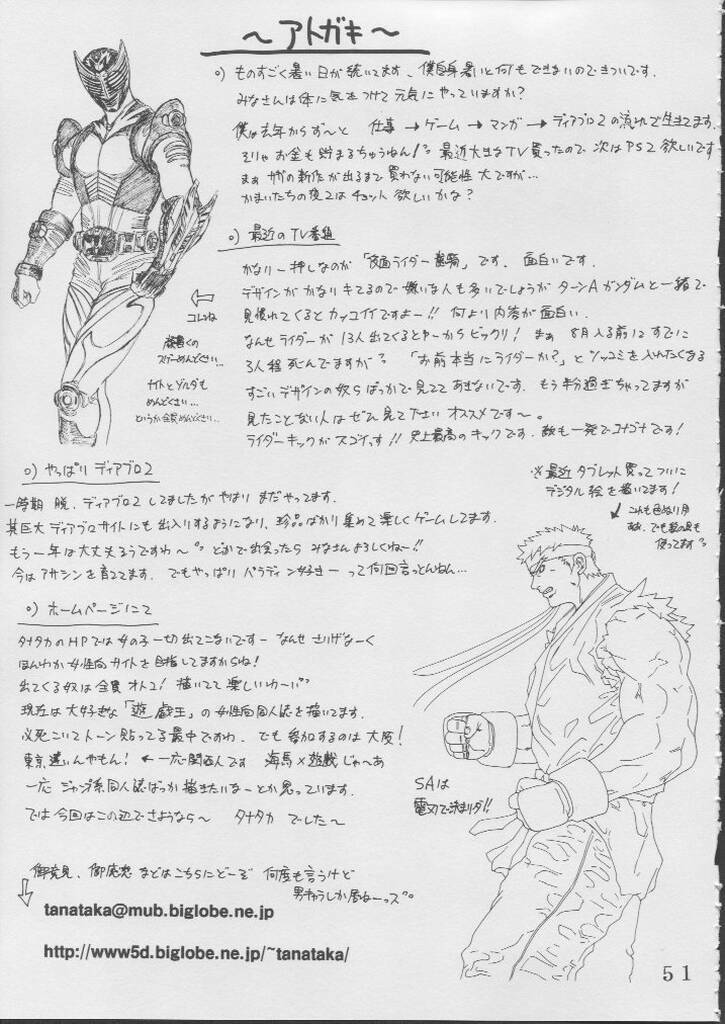 ～アトガキ～
○）ものすごく暑い日が続いてます、僕自身暑いと何もできないのできついです。
みなさんは体に気をつけて元気にやっていますか？
僕は去年からず〜と 仕事→ゲーム→マンガ→ディアブロ2の流れで生きてます。
そりゃお金も貯まるちゅうねん！ 最近大きなTV買ったので次はPS2欲しいです
まぁ サガの新作が出るまで買わない可能性大ですが…
かまいたちの夜2はチョット欲しいかな？
○）最近のTV番組
かなり一押しなのが「仮面ライダー龍騎」です。面白いです。
デザインがかなりキてるので嫌いな人も多いでしょうがターンAガンダムと一緒で
見慣れてくるとカッコイイですよー!! 何より内容が面白い。
なんせライダーが13人出てくるとゆーからビックリ！ まぁ 8月入る前にすでに
3人程死んでますが 「お前本当にライダーか？」とツッコミを入れたくなる
すごいデザインの奴らばっかで見ててあきないです。もう半分過ぎちゃってますが
見たことない人はぜひ見て下さい オススメです〜。
ライダーキックがスゴイっす!! 史上最高のキックです。敵も一発でコナゴナです！
コレね
龍騎の
めんどくさい…
ナイトとゾルダも
めんどくさい…
というか全員めんどくさい…
○）やっぱりディアブロ2
一時期 脱、ディアブロ2してましたがやはりまだやってます。
某巨大ディアブロサイトにも出入りするようになり、珍品ばかり集めて楽しくゲームしてます。
もう一年は大丈夫そうですわ〜 どこかで出会ったらみなさんよろしくねー!!
今はアサシンを育ててます。でもやっぱりパラディン好きーって何回言っとんねん…
※最近タブレット買ってついに
デジタル絵を描いてます！
○）ホームページにて
タナタカのHPでは女の子一切出てこないですー なんせさりげなーく
ほんわか女性向サイトを目指してますからね！
出てくる奴は全員オトコ！描いてて楽しいわー
現在は大好きな「遊戯王」の女性向同人誌を描いてます。
必死こいてトーン貼ってる最中ですわ。でも参加するのは大阪！
東京遠いんやもん！←一応関西人です 海馬×遊戯じゃ〜あ
一応ジャンプ系同人誌ばっか描きたいなーとか思っています。
では今回はこの辺でさようなら〜 タナタカ でした〜
SAは
電刃で決まりダ!!
御意見、御感想などはこちらにどーぞ 何度も言うけど
男キャラしか居ねーっス
tanataka@mub.biglobe.ne.jp
http://www5d.biglobe.ne.jp/~tanataka/
51